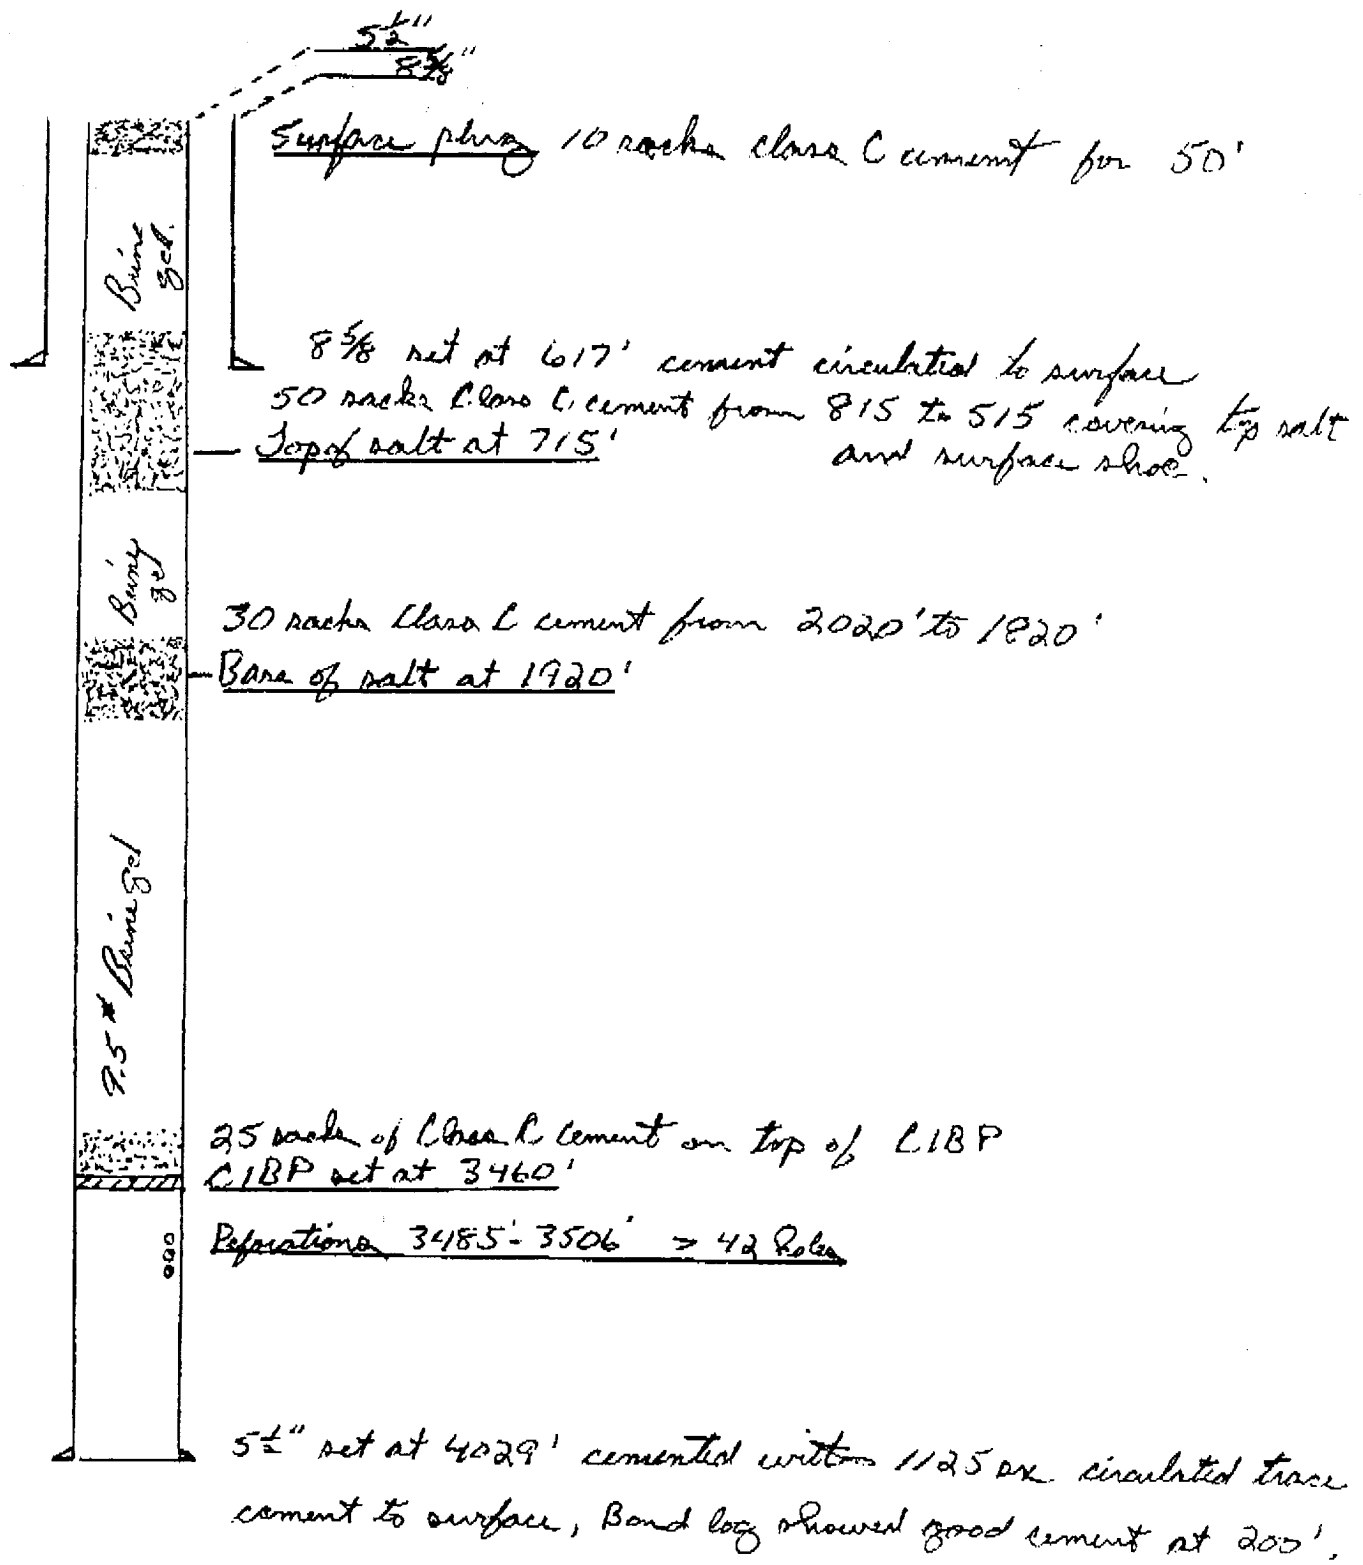 5 1/2"
8 5/8"
Surface plug 10 sacks class C cement for 50'
Brine gel.
8 5/8 set at 617' cement circulated to surface
50 sacks Class C cement from 815 to 515 covering top salt
and surface shoe.
Top of salt at 715'
Brine gel
30 sacks Class C cement from 2020' to 1820'
Base of salt at 1920'
9.5 # Brine gel
25 sacks of Class C cement on top of CIBP
CIBP set at 3460'
Perforations 3485'- 3506' > 42 holes
5 1/2" set at 4029' cemented with 1125 sx. circulated trace
cement to surface, Bond log showed good cement at 200'.